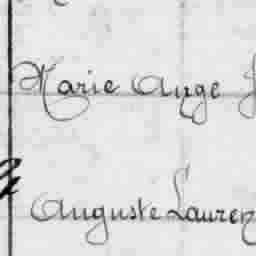 Marie Ange J
Auguste Lauren